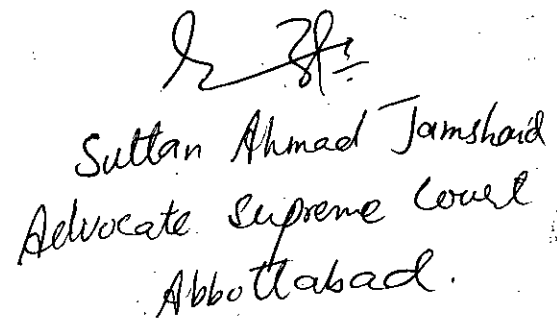 Sultan Ahmad Jamshaid
Advocate Supreme Court
Abbottabad.